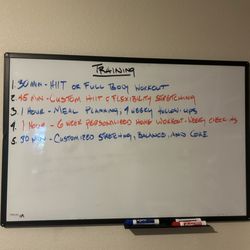 TRAINING
1. 30 MIN - HIIT OR FULL BODY WORKOUT
2. 45 MIN - CUSTOM HIIT & FLEXIBILITY STRETCHING
3. 1 HOUR - MEAL PLANNING, 4 WEEKLY FOLLOW-UPS
4. 1 HOUR - 6 WEEK PERSONALIZED HOME WORKOUT, WEEKLY CHECK INS
5. 30 MIN - CUSTOMIZED STRETCHING, BALANCE, AND CORE